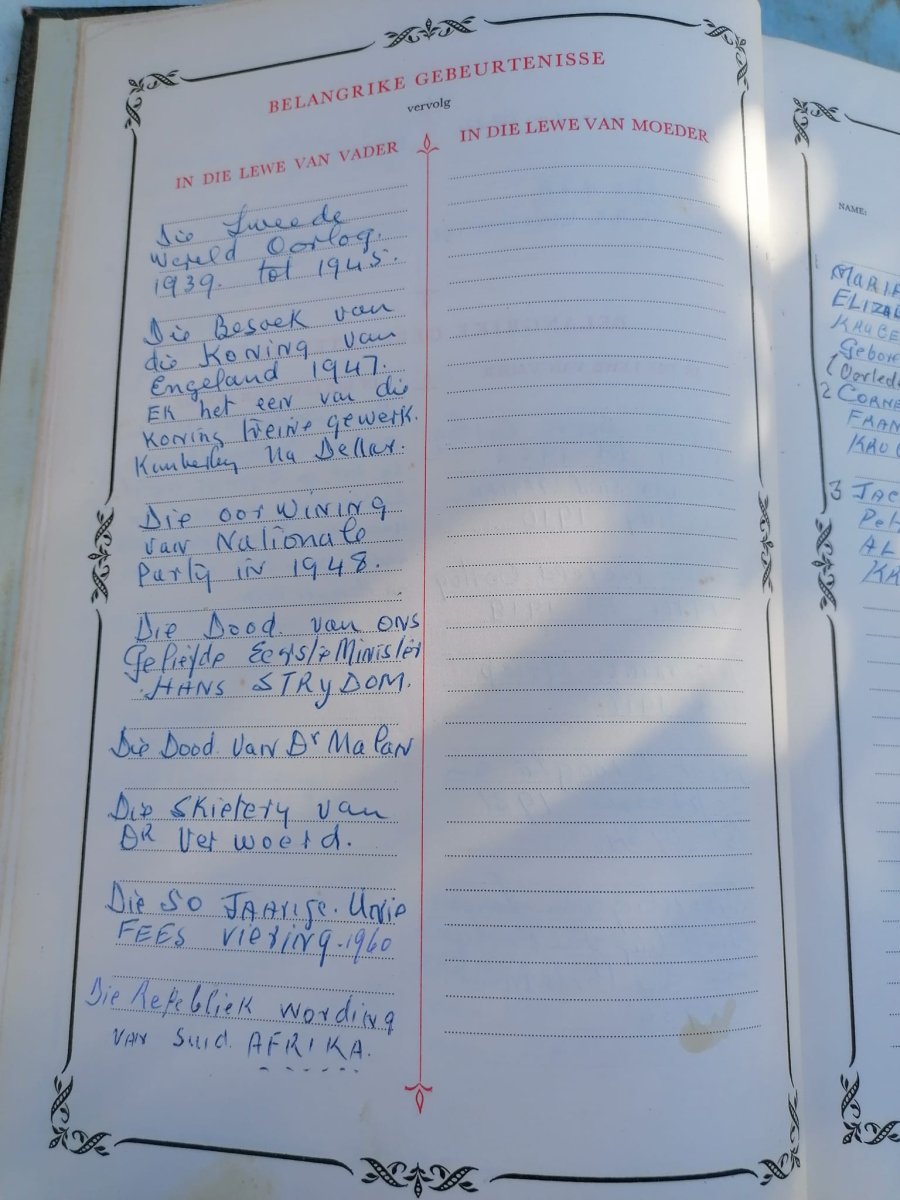 BELANGRIKE GEBEURTENISSE
vervolg
IN DIE LEWE VAN VADER
IN DIE LEWE VAN MOEDER
Die Tweede
Wereld Oorlog.
1939. tot 1945.
Die Besoek van
die KONING van
Engeland 1947.
EK het een van die
KONING treine gewerk.
Kimberley Na Dellar.
Die oorWINING
van Nationale
Party in 1948.
Die Dood van ONS
Geliefde Eerste Minister
HANS STRYDOM.
Die Dood Van Dr Malan
Die Skietery van
DR Verwoerd.
Die 50 JAARige. Unie
FEES viering. 1960
Die Repebliek wording
VAN Suid AFRIKA.
NAME:
MARIA
ELIZAB
KRUGE
Gebor
Oorlede
2 CORNE
FRAN
KRUG
3 JAC
Pet
AL
KR